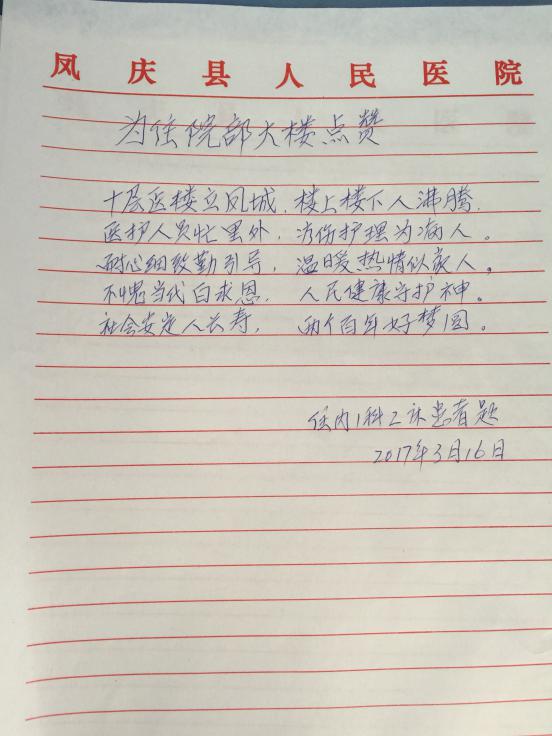 凤庆县人民医院
为住院部大楼点赞
十层医楼立凤城，楼上楼下人沸腾，
医护人员忙里外，为伤护理为病人。
耐心细致勤引导，温暖热情似家人。
不愧当代白求恩，人民健康守护神。
社会安定人长寿，两个百年好梦圆。
住内1科2床患者题
2017年3月16日